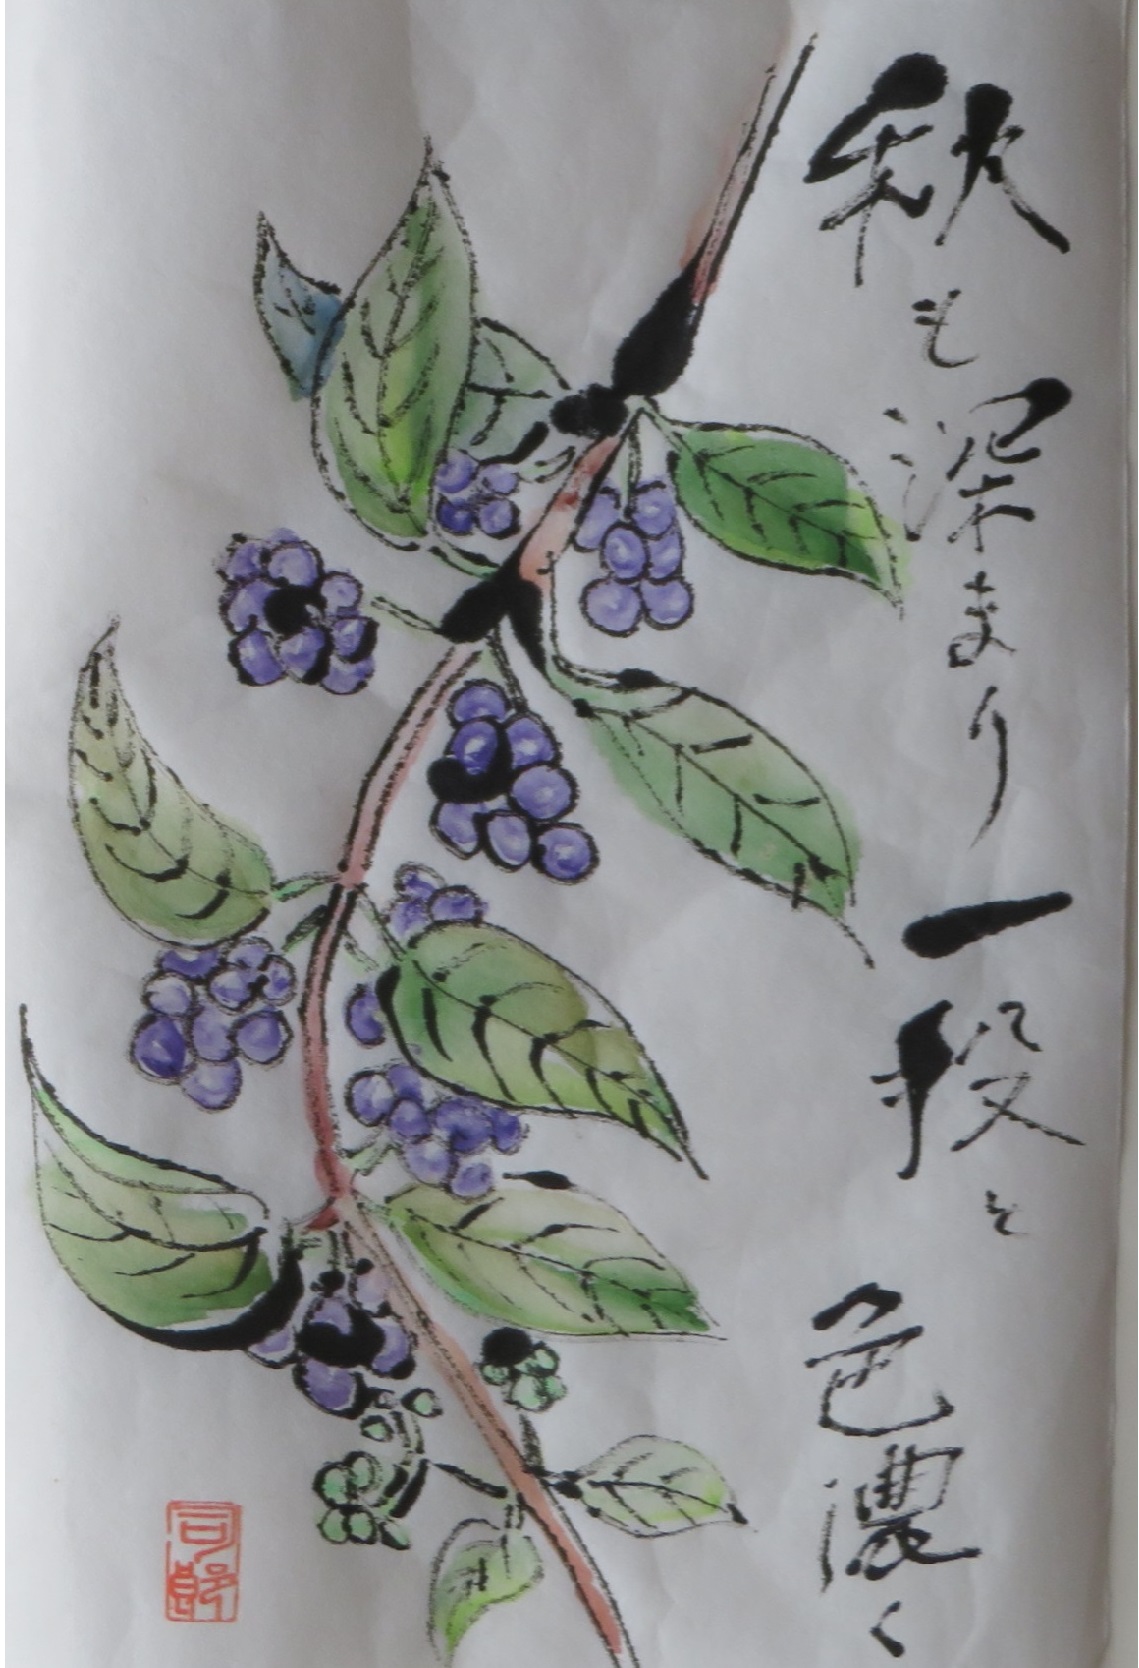 秋も深まり一段と
色濃く